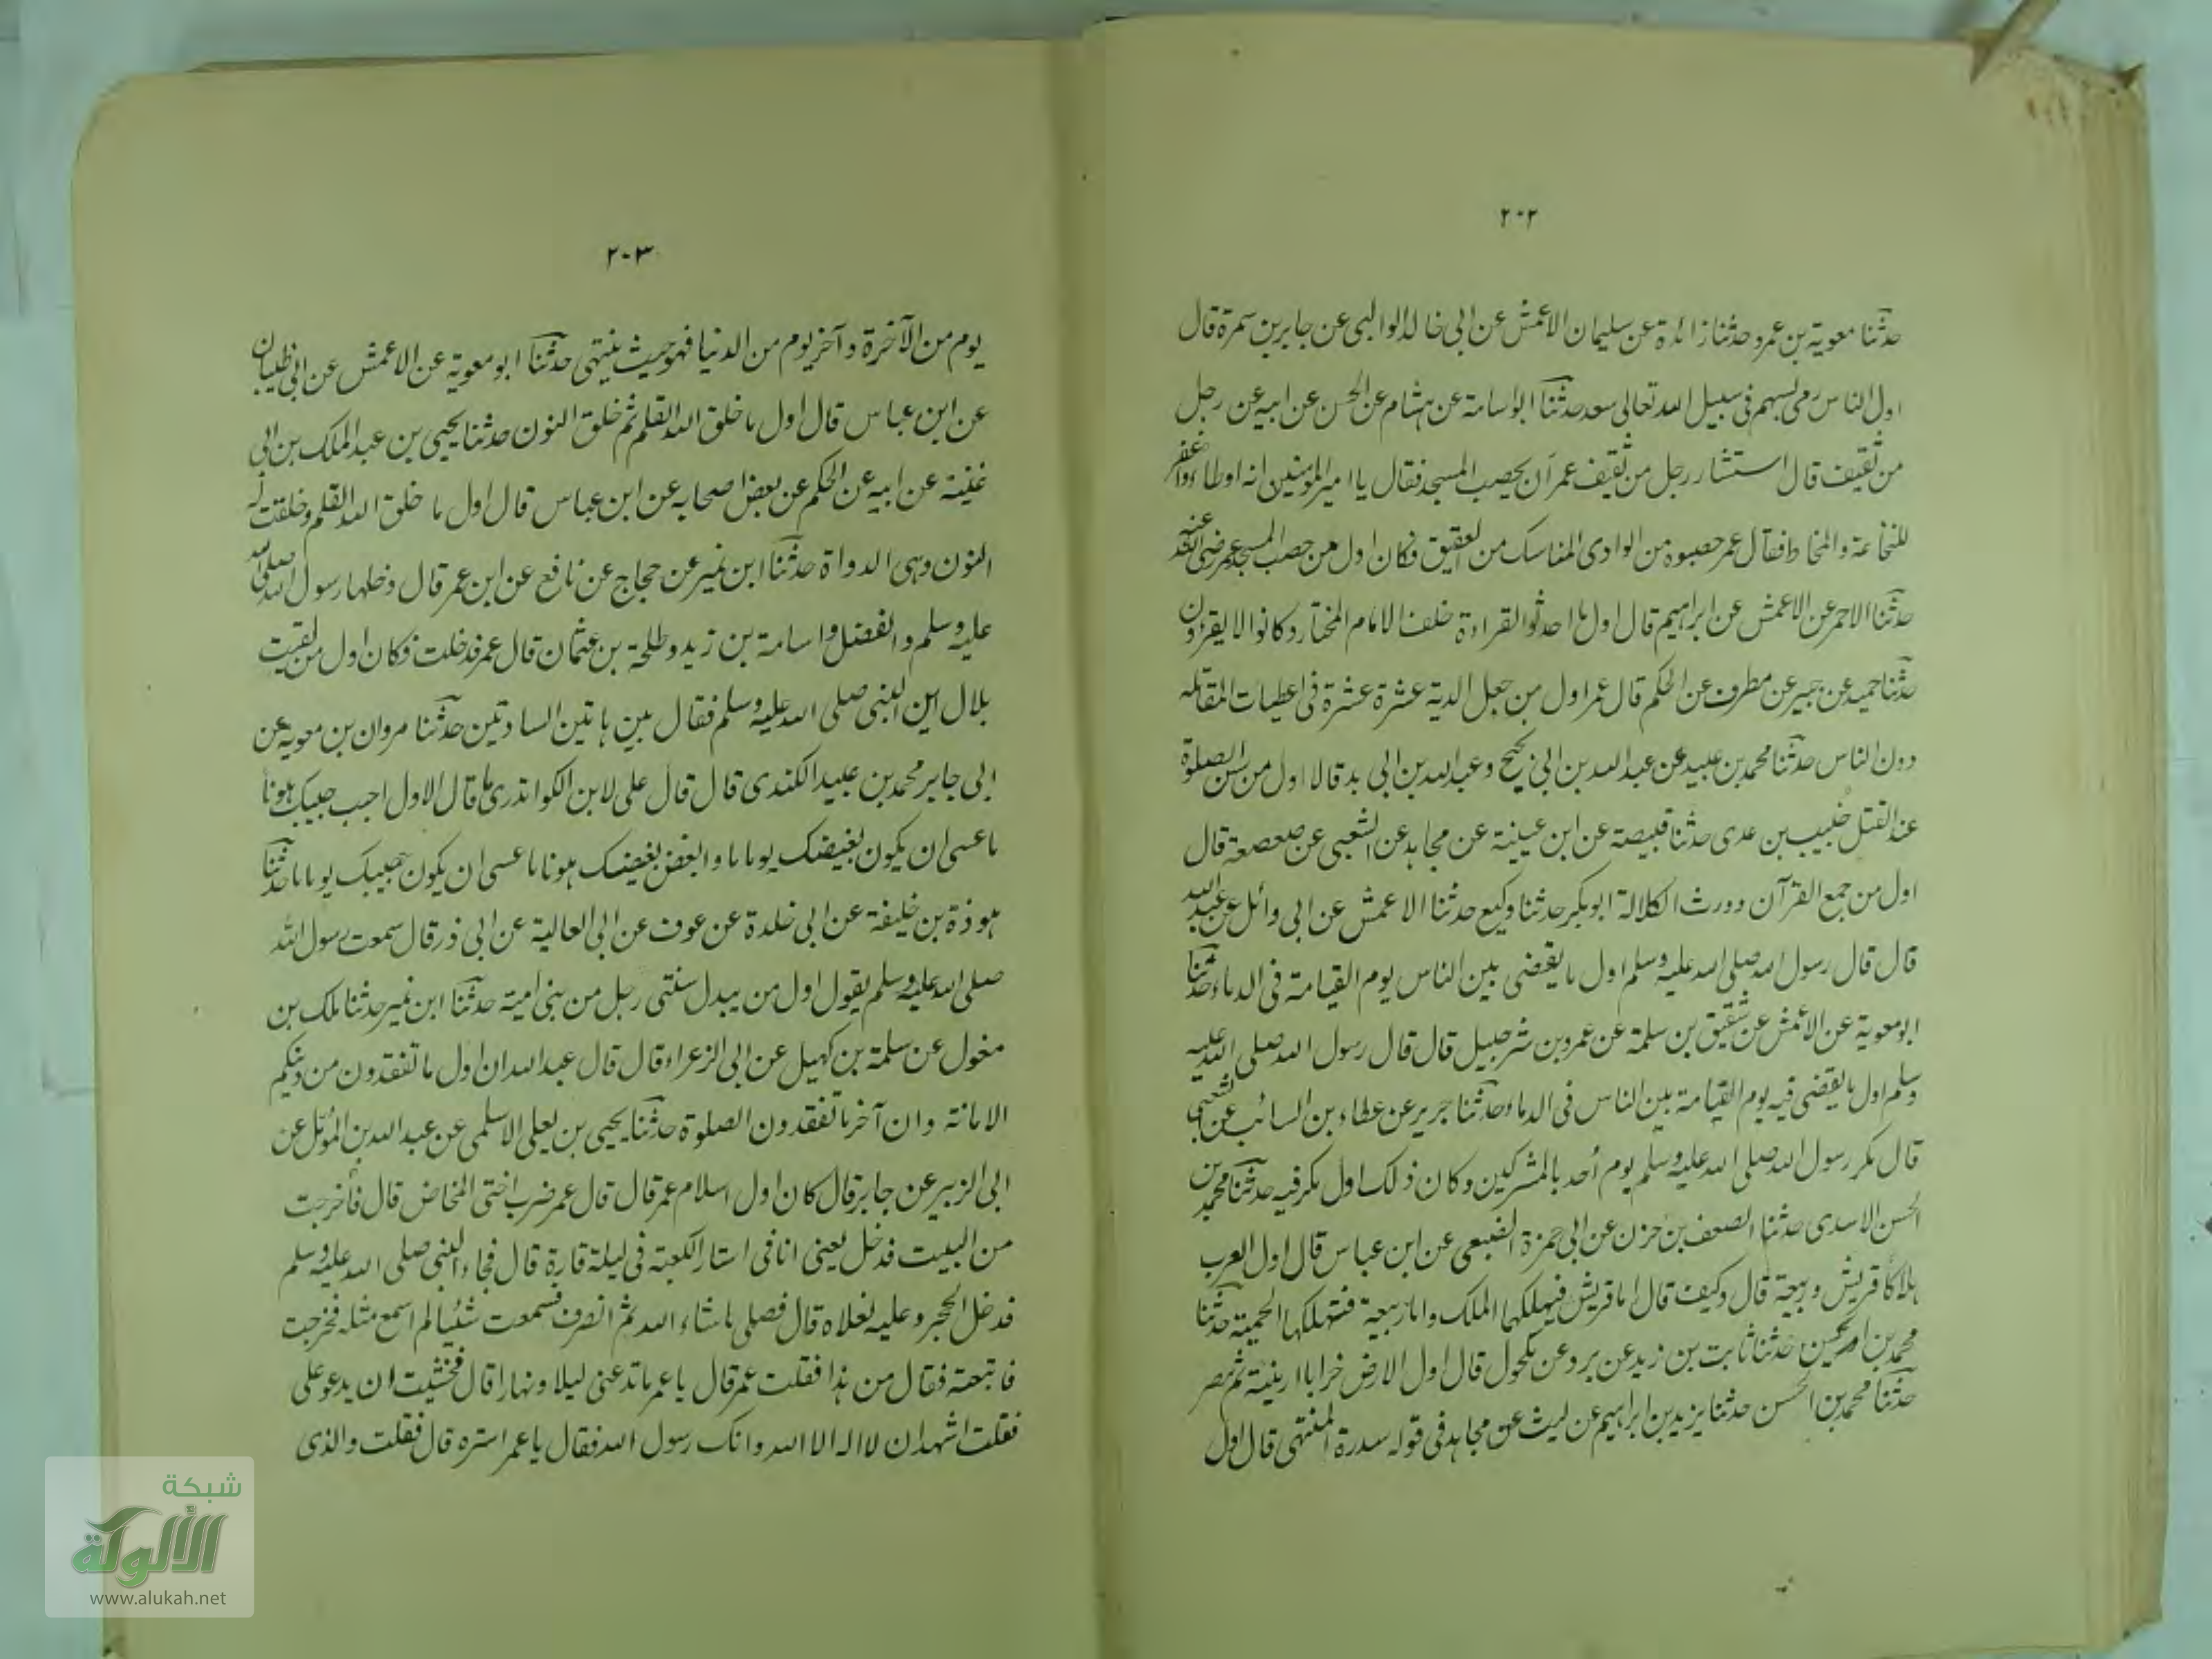 ٢٠٢
حدثنا معوية بن عمرو حدثنا زائدة عن سليمان الاعمش عن ابى خالد الوالبى عن جابر بن سمرة قال
اول الناس رمى بسهم فى سبيل الله تعالى سعد حدثنا ابو اسامة عن هشام عن الحسن عن ابيه عن رجل
من ثقيف قال استشار رجل من ثقيف عمر ان يحصب المسجد فقال يا امير المومنين انه اوطاء واغفر
للنخاعة والمخاط فقال عمر حصبوه من الوادى المناسك من العقيق فكان اول من حصب المسجد عمر رضى الله عنه
حدثنا الاحمر عن الاعمش عن ابراهيم قال اول ما احدثوا القراءة خلف الامام المختار وكانوا لا يقرؤن
حدثنا حميد عن جبير عن مطرف عن الحكم قال عمر اول من جعل الدية عشرة عشرة فى اعطيات المقاتلة
دون الناس حدثنا محمد بن عبيد عن عبد الله بن ابى نجيح وعبد الله بن ابى بد قالا اول من سن الصلوة
عند القتل خبيب بن عدى حدثنا قبيصة عن ابن عيينة عن مجاهد عن الشعبى عن صعصعة قال
اول من جمع القرآن وورث الكلالة ابو بكر حدثنا وكيع حدثنا الاعمش عن ابى وائل عن عبد الله
قال قال رسول الله صلى الله عليه وسلم اول ما يقضى بين الناس يوم القيامة فى الدماء حدثنا
ابو معوية عن الاعمش عن شقيق بن سلمة عن عمرو بن شرحبيل قال قال رسول الله صلى الله عليه
وسلم اول ما يقضى فيه يوم القيامة بين الناس فى الدماء حدثنا جرير عن عطاء بن السائب عن الشعبى
قال مكر رسول الله صلى الله عليه وسلم يوم أحد بالمشركين وكان ذلك اول مكر فيه حدثنا محمد بن
الحسن الاسدى حدثنا الصعف بن حزن عن ابى حمزة الضبعى عن ابن عباس قال اول العرب
هلاكا قريش وربيعة قال وكيف قال اما قريش فيهلكها الملك واما ربيعة فتهلكها الحمية حدثنا
محمد بن الحسن حدثنا ثابت بن زيد عن برد عن مكحول قال اول الارض خرابا ارمينية ثم مصر
حدثنا محمد بن الحسن حدثنا يزيد بن ابراهيم عن ليث عن مجاهد فى قوله سدرة المنتهى قال اول
٢٠٣
يوم من الآخرة وآخر يوم من الدنيا فهو حيث ينتهى حدثنا ابو معوية عن الاعمش عن ابى ظبيان
عن ابن عباس قال اول ما خلق الله القلم ثم خلق النون حدثنا يحيى بن عبد الملك بن ابى
غنية عن ابيه عن الحكم عن بعض اصحابه عن ابن عباس قال اول ما خلق الله القلم وخلقت له
النون وهى الدواة حدثنا ابن نمير عن حجاج عن نافع عن ابن عمر قال دخلها رسول الله صلى الله
عليه وسلم والفضل واسامة بن زيد وطلحة بن عثمان قال عمر فدخلت فكان اول من لقيت
بلال اين النبى صلى الله عليه وسلم فقال بين هاتين السادتين حدثنا مروان بن معوية عن
ابى جابر محمد بن عبيد الكندى قال قال على لابن الكوا تدرى ما قال الاول احبب حبيبك هونا
ما عسى ان يكون بغيضك يوما ما وابغض بغيضك هونا ما عسى ان يكون حبيبك يوما ما حدثنا
هوذة بن خليفة عن ابى خلدة عن عوف عن ابى العالية عن ابى ذر قال سمعت رسول الله
صلى الله عليه وسلم يقول اول من يبدل سنتى رجل من بنى امية حدثنا ابن نمير حدثنا ملك بن
مغول عن سلمة بن كهيل عن ابى الزعراء قال قال عبد الله ان اول ما تفقدون من دينكم
الامانة وان آخر ما تفقدون الصلوة حدثنا يحيى بن يعلى الاسلمى عن عبد الله بن المؤمل عن
ابى الزبير عن جابر قال كان اول اسلام عمر قال قال عمر ضرب اختى المخاض قال فأخرجت
من البيت فدخل يعنى انا فى استار الكعبة فى ليلة قارة قال فجاء النبى صلى الله عليه وسلم
فدخل الحجر وعليه نعلاه قال فصلى ما شاء الله ثم انصرف فسمعت شئيا لم اسمع مثله فخرجت
فاتبعته فقال من هذا فقلت عمر قال يا عمر ما تدعنى ليلا ونهارا قال فخشيت ان يدعو على
فقلت اشهد ان لا اله الا الله وانك رسول الله فقال يا عمر استره قال فقلت والذى
شبكة
الألوكة
www.alukah.net